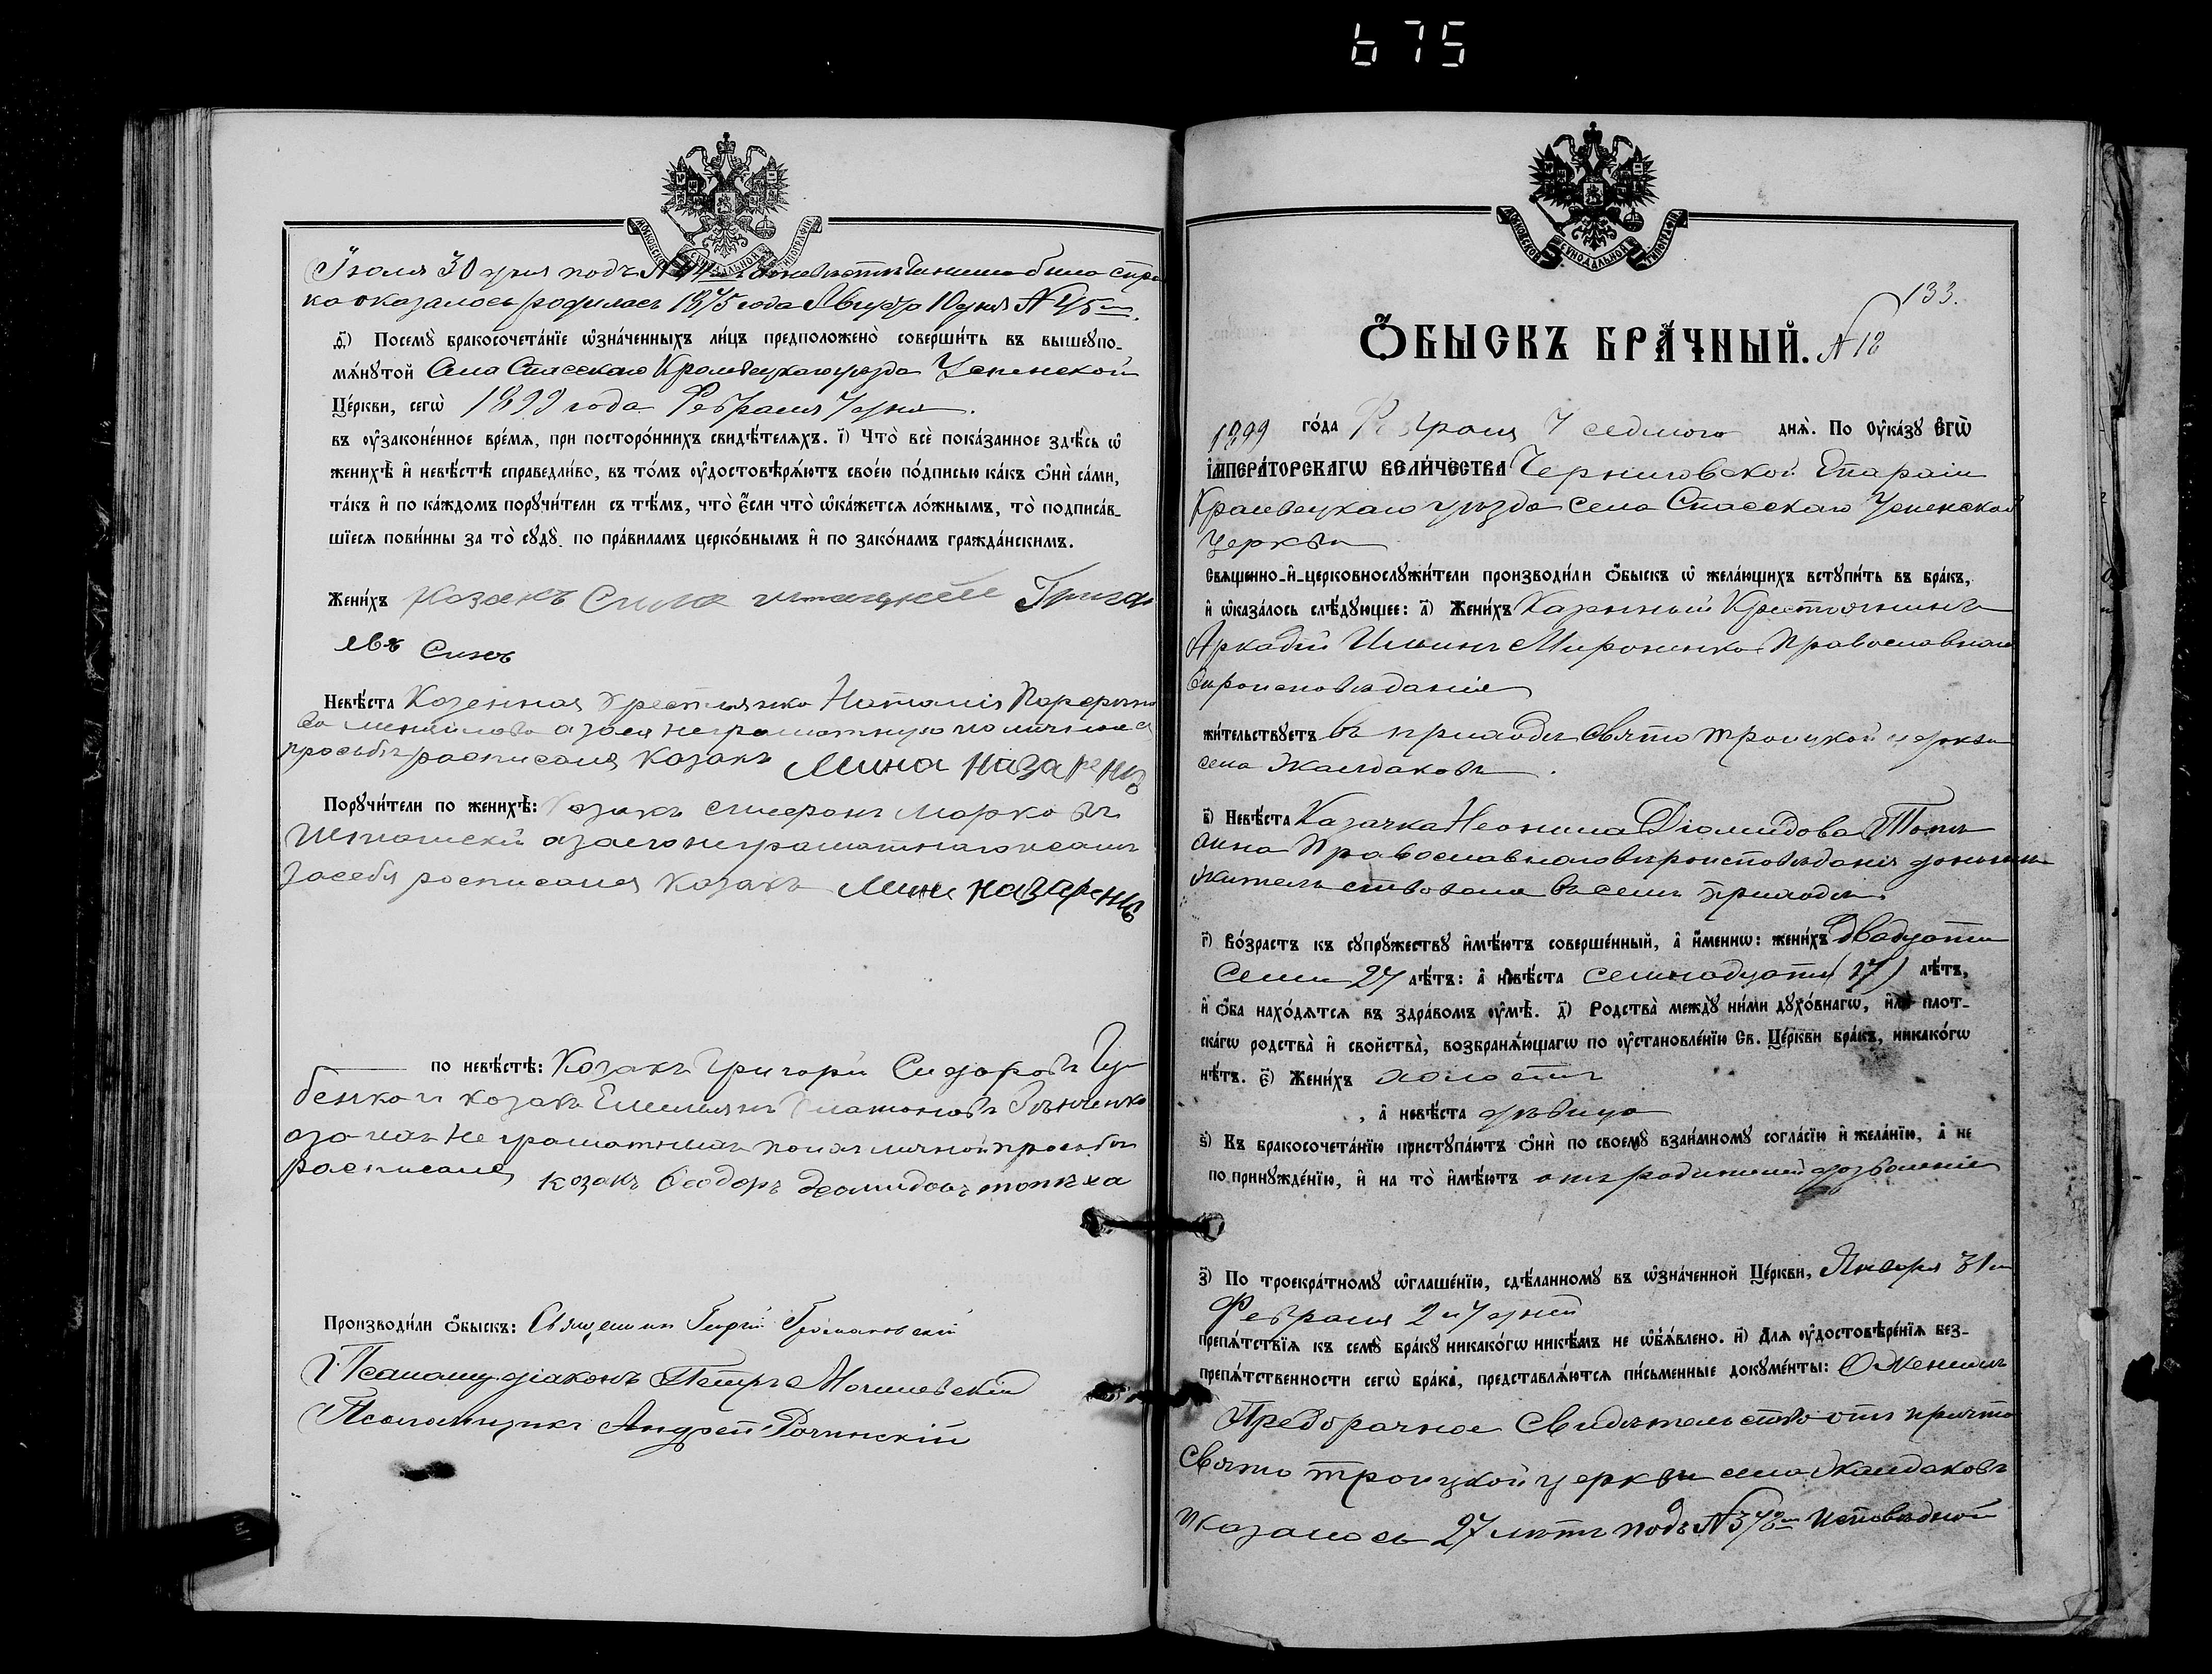 675
МОСКОВСКОЙ СѴНОДАЛЬНОЙ ТИПОГРАФІИ
Іюля 30 дня подъ № о невѣстѣ
ка оказалось родилась 1875 года Августа 10 дня № 45
д҃і) Посемꙋ̀ бракосочета́нїе ѡ҆зна́ченныхъ ли́цъ предположено̀ соверши́ть въ вышеꙋпо-
мѧ́нꙋтой Села Спасскаго Кролевецкаго уѣзда Успенской
Це́ркви, сегѡ̀ 1899 года Февраля 7 дня.
въ ᲂу҆зако́ненное вре́мѧ, при посторо́ннихъ свидѣ́телѧхъ. і҃) Что̀ всѐ пока́занное здѣ́сь ѡ҆
женихѣ̀ и҆ невѣ́стѣ справедли́во, въ то́мъ ᲂу҆достовѣрѧ́ютъ свое́ю по́дписью ка́къ ѻ҆нѝ са́ми,
та́къ и҆ по ка́ждомъ порꙋчи́тели съ тѣ́мъ, что̀ є҆́сли что̀ ѡ҆ка́жетсѧ ло́жнымъ, то̀ подписа́в-
шїесѧ пови́нны за то̀ сꙋдꙋ̀ по пра́виламъ церко́внымъ и҆ по зако́намъ гражда́нскимъ.
Жени́хъ Козакъ Сила Григо
евъ Синъ
Невѣ́ста Козенная Крестьянка Наталія
а за ея неграмотную по личной ея
просьбѣ росписался Козакъ Мина Назаренко
Порꙋчи́тели по женихѣ̀: Козакъ Марковъ
а за его неграмотнаго и самъ
за себя росписался Козакъ Мина Назаренко
по невѣ́стѣ: Козакъ Григорій Сидоровъ Гу-
бенко и козакъ Емельянъ Платоновъ
а за ихъ неграмотныхъ по ихъ личной просьбѣ
росписался козакъ Ѳеодоръ Деомидовъ топчха
Производи́ли ѻ҆́быскъ: Священникъ Георгій
Псаломщ. діаконъ Петръ
Псаломщикъ Андрей
МОСКОВСКОЙ СѴНОДАЛЬНОЙ ТИПОГРАФІИ
133.
Ѻ҆́БЫСКЪ БРА́ЧНЫЙ. № 18
1899 го́да Февраля 7 седмого днѧ̀. По ᲂу҆ка́зꙋ Є҆ГѠ̀
І҆МПЕРА́ТОРСКАГѠ ВЕЛИ́ЧЕСТВА Черниговской Епархіи
Кролевецкаго уѣзда села Спасскаго Успенской
Церкви
Свѧщенно-и҆-церковнослꙋжи́тели производи́ли ѻ҆́быскъ ѡ҆ жела́ющихъ встꙋпи́ть въ бра́къ,
и҆ ѡ҆каза́лось слѣ́дꙋющее: а҃) Жени́хъ Казенный Крестьянинъ
Аркадій Ильинъ Мироненко Православнаго
вѣроисповѣданія
жи́тельствꙋетъ въ приходѣ Свято Троицкой церкви
села Жалдаковъ.
в҃) Невѣ́ста Казачка Неонила Діомидова
Православнаго вѣроисповѣданія донынѣ
жительствовала въ семъ приходѣ.
г҃) Во́зрастъ къ сꙋпрꙋ́жествꙋ и҆мѣ́ютъ соверше́нный, а҆ и҆́меннѡ: жени́хъ Двадцати
семи 27 лѣ́тъ: а҆ невѣ́ста семнадцати (17) лѣ́тъ,
и҆ ѻ҆́ба нахо́дѧтсѧ въ здра́вомъ ᲂу҆мѣ̀. д҃) Родства̀ междꙋ̀ ни́ми дꙋхо́внагѡ, и҆лѝ плот-
ска́гѡ родства̀ и҆ сво́йства̀, возбранѧ́ющагѡ по ᲂу҆становле́нїю Св. Це́ркви бра́къ, никако́гѡ
нѣ́тъ. є҃) Жени́хъ холостъ
, а҆ невѣ́ста дѣвица
ѕ҃) Къ бракосочета́нїю пристꙋпа́ютъ ѻ҆нѝ по своемꙋ̀ взаи́мномꙋ согла́сїю и҆ жела́нїю, а҆ не
по принꙋжде́нїю, и҆ на то̀ и҆мѣ́ютъ отъ родителей дозволеніе
з҃) По троекра́тномꙋ ѡ҆глаше́нїю, сдѣ́ланномꙋ въ ѡ҆зна́ченной Це́ркви, Января 31
Февраля 2 и 7 дней
препѧ́тствїѧ къ семꙋ̀ бра́кꙋ никако́гѡ никѣ́мъ не ѡ҆б̾ѧ́влено. и҃) Длѧ ᲂу҆достовѣре́нїѧ без-
препѧ́тственности сегѡ̀ бра́ка, представлѧ́ютсѧ пи́сьменные докꙋме́нты: О женихѣ
Предбрачное Свидѣтельство отъ причта
Свято троицкой церкви села Жалдаковъ
оказалось 27 лѣтъ подъ № 378 исповѣдной